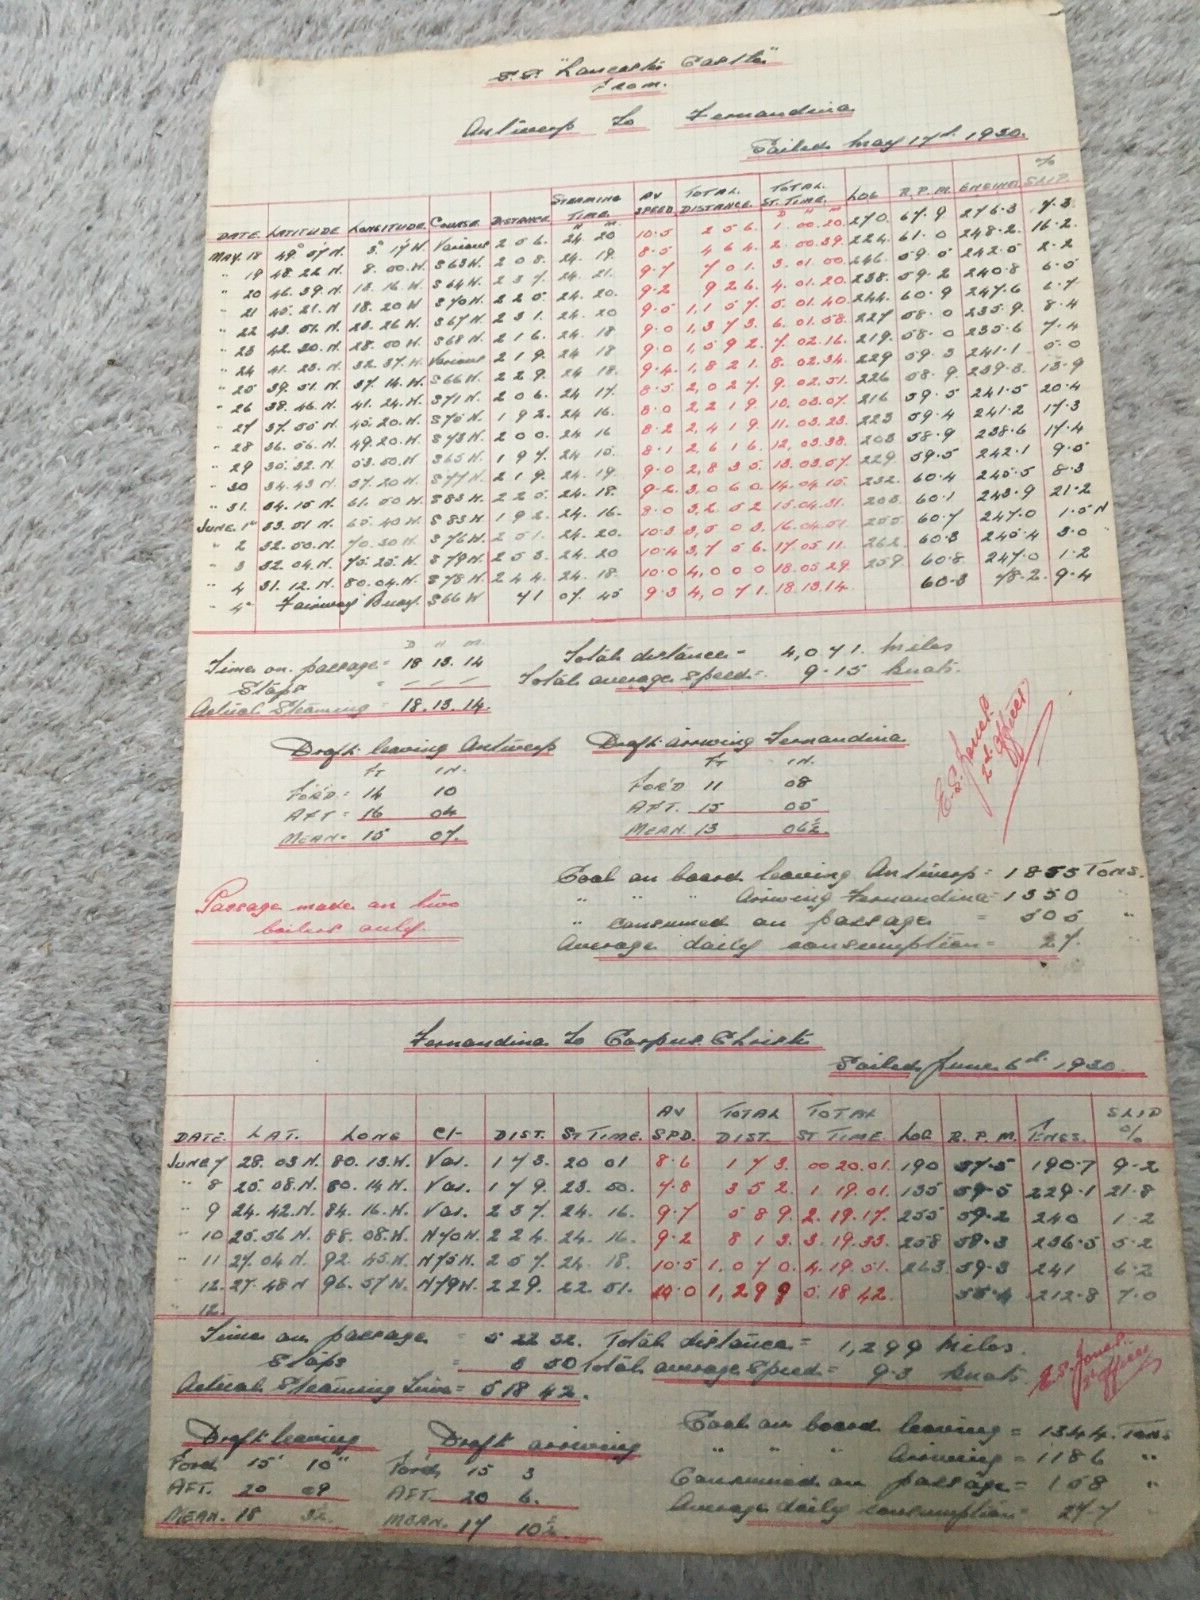 S.S. "Lancaster Castle"
From
Antwerp to Fernandina
Sailed May 17th 1930.
DATE. LATITUDE LONGITUDE COURSE DISTANCE STEAMING TIME. AV SPEED TOTAL DISTANCE. TOTAL ST. TIME. LOG R.P.M. ENGINES % SLIP.
H M D H M
MAY. 18 49° 07' N. 3° 17 W. Various 256. 24 20 10.5 256. 1.00.20. 270. 67.9 276.3 7.3
" 19 48.22 N. 8.00 W. S63W. 208. 24. 19. 8.5 464. 2.00.39. 224. 61.0 248.2 16.2
" 20 46.39 N. 13.16 W. S64W. 237. 24. 21. 9.7 701. 3.01.00 246. 59.5 242.5 2.2
" 21 45.21 N. 18.20 W S70W. 225. 24. 20. 9.2 926. 4.01.20. 238. 59.2 240.8 6.5
" 22 43.51 N. 23.26 W. S67W. 231. 24. 20 9.5 1,157. 5.01.40 244. 60.9 247.6 6.7
" 23 42.30 N. 28.00 W. S68W. 216. 24. 18 9.0 1,373. 6.01.58. 227 58.0 235.9 8.4
" 24 41.23 N. 32.37 W. Various 219. 24 18 9.0 1,592. 7.02.16. 219. 58.0 235.6 7.4
" 25 39.51 N. 37.14 W. S66W. 229. 24 18. 9.4 1,821. 8.02.34. 229 59.3 241.1 5.0
" 26 38.46 N. 41.24 W. S71W. 206. 24 17 8.5 2,027. 9.02.51. 226 58.9 239.3 13.9
" 27 37.55 N. 45.20 W. S75W. 192. 24 16. 8.0 2,219. 10.03.07. 216 59.5 241.5 20.4
" 28 36.56 N. 49.20 W. S73W. 200. 24 16 8.2 2,419. 11.03.23. 223 59.4 241.2 17.3
" 29 35.32 N. 53.50 W. S65W. 197. 24 15. 8.1 2,616. 12.03.38. 203 58.9 238.6 17.4
" 30 34.43 N. 57.20 W. S77W. 219. 24. 19. 9.0 2,835. 13.03.57. 229 59.5 242.1 9.5
" 31. 34.15 N. 61.50 W. S83W. 225. 24. 18. 9.2 3,060. 14.04.15. 232. 60.4 245.5 8.3
JUNE 1st 33.51 N. 65.40 W. S83W. 192. 24. 16. 8.0 3,252 15.04.31. 203. 60.1 243.9 21.2
" 2 32.50 N. 70.30 W. S76W. 251. 24. 20. 10.3 3,503. 16.04.51. 255 60.7 247.0 1.5 N
" 3 32.04 N. 75.25 W. S79W. 253. 24. 20 10.4 3,756. 17.05 11. 262. 60.3 245.4 3.0 "
" 4 31.12 N. 80.04 W. S78W. 244. 24. 18. 10.0 4,000 18.05 29. 259 60.8 247.0 1.2
" 4" Fairway Buoy. S66W 71 07. 45 9.3 4,071. 18.13.14. 60.3 78.2. 9.4
D H M
Time on passage = 18 13. 14 Total distance = 4,071. Miles
Stops = — — — Total average speed = 9.15 Knots.
Actual Steaming = 18. 13. 14.
Draft leaving Antwerp Draft arriving Fernandina
FT IN. FT IN.
FOR'D = 14 10 FOR'D 11 08
AFT = 16 04 AFT. 15 05
MEAN = 15 07. MEAN. 13 06½.
E. S. Jones.
2nd Officer
Coal on board leaving Antwerp = 1855 TONS.
" " " Arriving Fernandina = 1350 "
" consumed on passage = 505 "
Average daily consumption = 27. "
Passage made on two
boilers only.
Fernandina To Corpus Christi
Sailed June 6th 1930.
DATE. LAT. LONG C/- DIST. ST TIME. AV SPD. TOTAL DIST. TOTAL ST TIME. LOG R.P.M. ENGS. SLIP %
JUNE 7 28.03 N. 80.13 W. Var. 173. 20 01 8.6 173. 00 20.01. 190 57.5 190.7 9.2
" 8 25.08 N. 80.14 W. Var. 179. 23. 00. 7.8 352. 1 19.01. 135 59.5 229.1 21.8
" 9 24.42 N. 84.16 W. Var. 237. 24. 16. 9.7 589 2.19.17. 255 59.2 240 1.2
" 10 25.56 N. 88.08 W. N70W. 224. 24. 16. 9.2 813 3.19.33. 258 58.3 236.5 5.2
" 11 27.04 N. 92.45 W. N75W. 257. 24 18. 10.5 1,070. 4.19.51. 263. 59.3 241 6.2
" 12. 27.48 N 96.57 W. N79W. 229. 22 51. 10.0 1,299 5.18 42. 55.4 212.8 7.0
" 12.
Time on passage = 5 22 32. Total distance = 1,299 Miles.
Stops = 3 50 Total average speed = 9.3 Knots
Actual Steaming Time = 5 18 42.
E. S. Jones.
2nd Officer
Draft leaving Draft arriving
For'd 15' 10" For'd 15 3
AFT. 20 09 AFT. 20 6.
MEAN. 18 3½. MEAN. 17 10½.
Coal on board leaving = 1344. Tons.
" " " Arriving = 1186 "
Consumed on passage = 158 "
Average daily consumption = 27.7 "